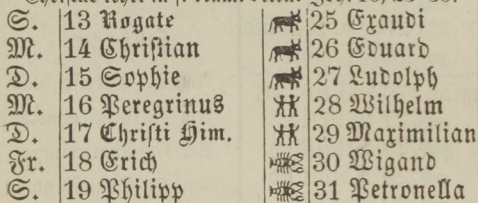 S. 13 Rogate 25 Exaudi
M. 14 Christian 26 Eduard
D. 15 Sophie 27 Ludolph
M. 16 Peregrinus 28 Wilhelm
D. 17 Christi Him. 29 Maximilian
Fr. 18 Erich 30 Wigand
S. 19 Philipp 31 Petronella